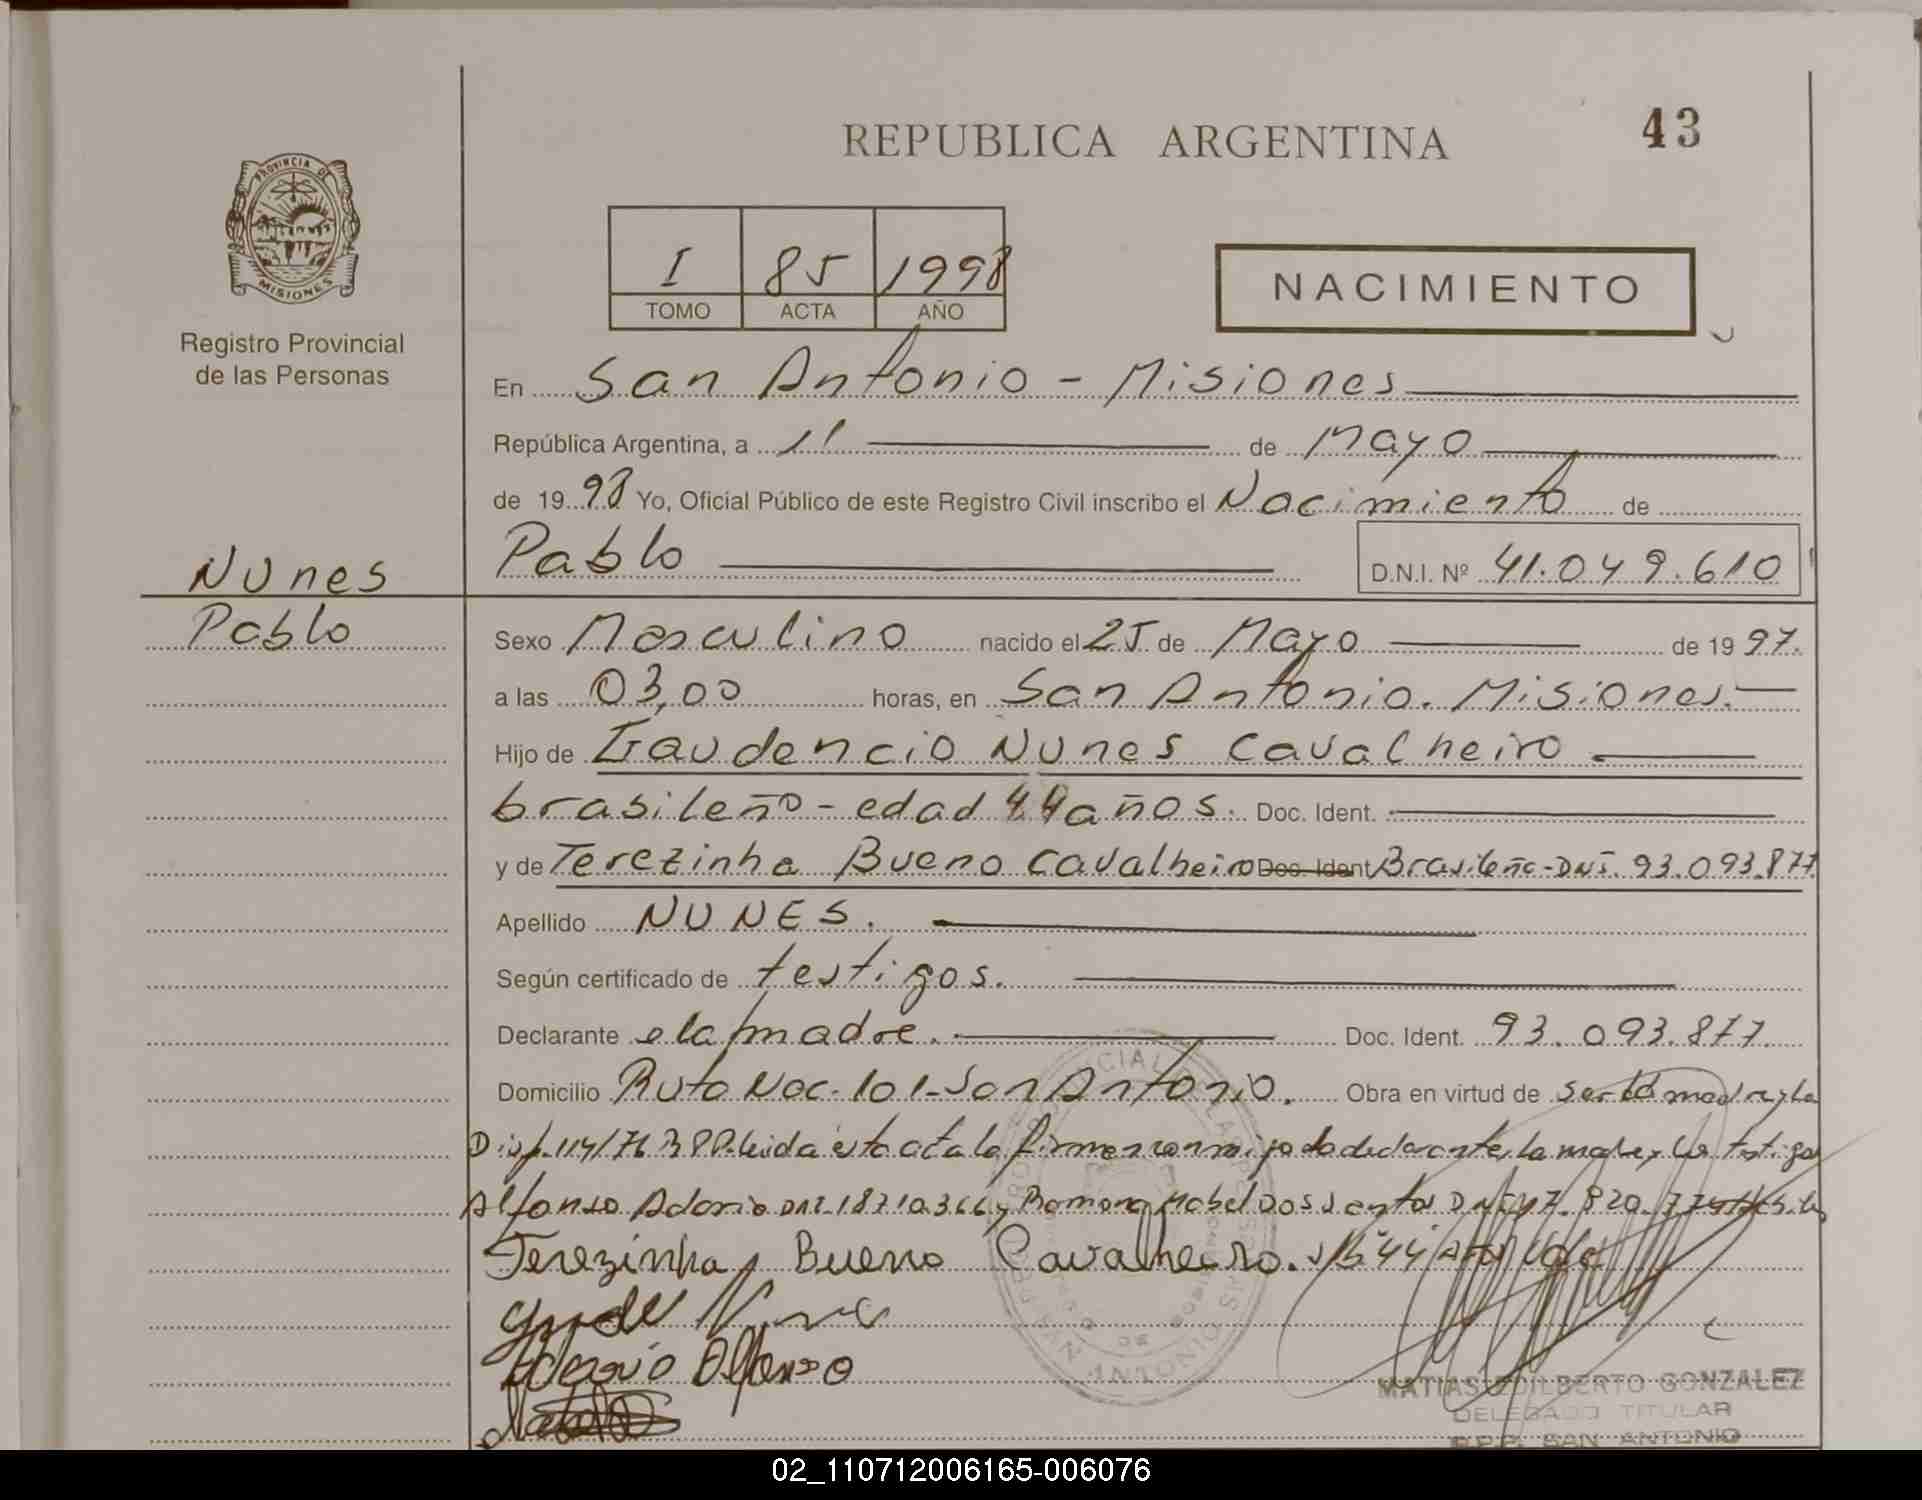 REPUBLICA ARGENTINA
43
PROVINCIA DE
MISIONES
Registro Provincial
de las Personas
I 85 1998
TOMO ACTA AÑO
NACIMIENTO
En San Antonio - Misiones
República Argentina, a 11 de Mayo
de 1998 Yo, Oficial Público de este Registro Civil inscribo el Nacimiento de
Pablo D.N.I. Nº 41.049.610
Nunes
Pablo
Sexo Masculino nacido el 25 de Mayo de 1997.
a las 03,00 horas, en San Antonio. Misiones.
Hijo de Gaudencio Nunes Cavalheiro
brasileño - edad 44 años. Doc. Ident.
y de Terezinha Bueno Cavalheiro Doc. Ident Brasileña - DNI. 93.093.877.
Apellido NUNES.
Según certificado de testigos.
Declarante la madre. Doc. Ident. 93.093.877.
Domicilio Ruta Nac. 101 - San Antonio. Obra en virtud de ser la madre y la
Disp. 114/76 RPP. Leida esta acta la firman conmigo la declarante, la madre, y los testigos
Alfonso Adorio DNI. 18710366 y Ramona Mabel Dos Santos DNI 17.820.774
Terezinha Bueno Cavalheiro.
Adorio Alfonso
SAN ANTONIO
MATIAS EDILBERTO GONZALEZ
DELEGADO TITULAR
R.P.P. SAN ANTONIO
02_110712006165-006076